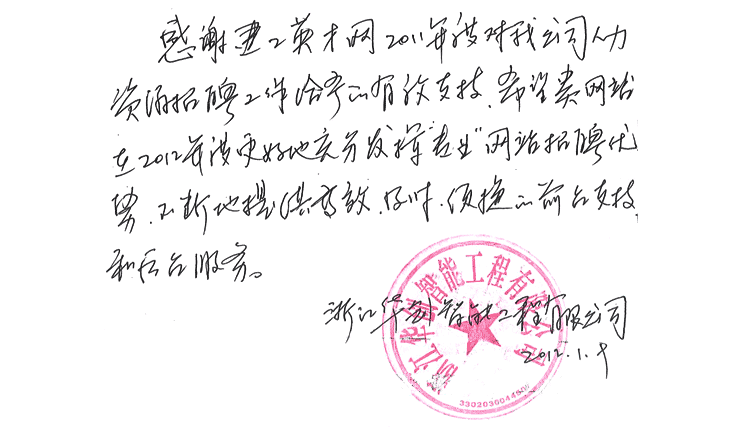 感谢建工英才网2011年度对我公司人力
资源招聘工作给予的有效支持,希望贵网站
在2012年度更好地充分发挥"专业"网站招聘优
势,不断地提供高效、及时、便捷的前台支持
和后台服务。
浙江华剑智能工程有限公司
2012.1.9
浙江华剑智能工程有限公司